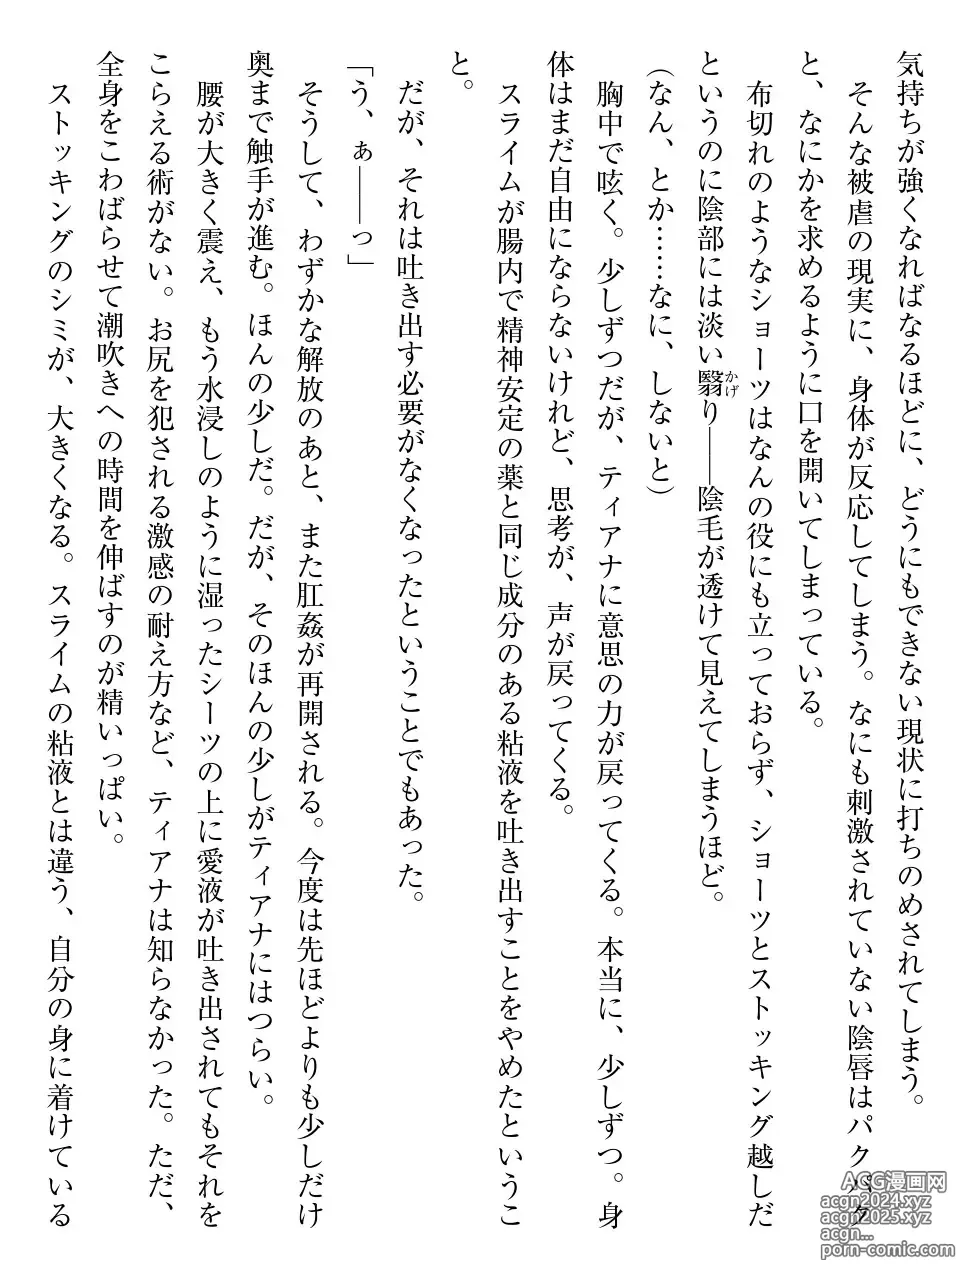 気持ちが強くなればなるほどに、どうにもできない現状に打ちのめされてしまう。
そんな被虐の現実に、身体が反応してしまう。なにも刺激されていない陰唇はパクパク
と、なにかを求めるように口を開いてしまっている。
布切れのようなショーツはなんの役にも立っておらず、ショーツとストッキング越しだ
というのに陰部には淡い翳り――陰毛が透けて見えてしまうほど。
かげ
(なん、とか……なに、しないと)
胸中で呟く。少しずつだが、ティアナに意思の力が戻ってくる。本当に、少しずつ。身
体はまだ自由にならないけれど、思考が、声が戻ってくる。
スライムが腸内で精神安定の薬と同じ成分のある粘液を吐き出すことをやめたというこ
と。
だが、それは吐き出す必要がなくなったということでもあった。
「う、ぁ――っ」
そうして、わずかな解放のあと、また肛姦が再開される。今度は先ほどよりも少しだけ
奥まで触手が進む。ほんの少しだ。だが、そのほんの少しがティアナにはつらい。
腰が大きく震え、もう水浸しのように湿ったシーツの上に愛液が吐き出されてもそれを
こらえる術がない。お尻を犯される激感の耐え方など、ティアナは知らなかった。ただ、
全身をこわばらせて潮吹きへの時間を伸ばすのが精いっぱい。
ストッキングのシミが、大きくなる。スライムの粘液とは違う、自分の身に着けている
ACG漫画网
acgn2024.xyz
acgn2025.xyz
acgn...
porn-comic.com